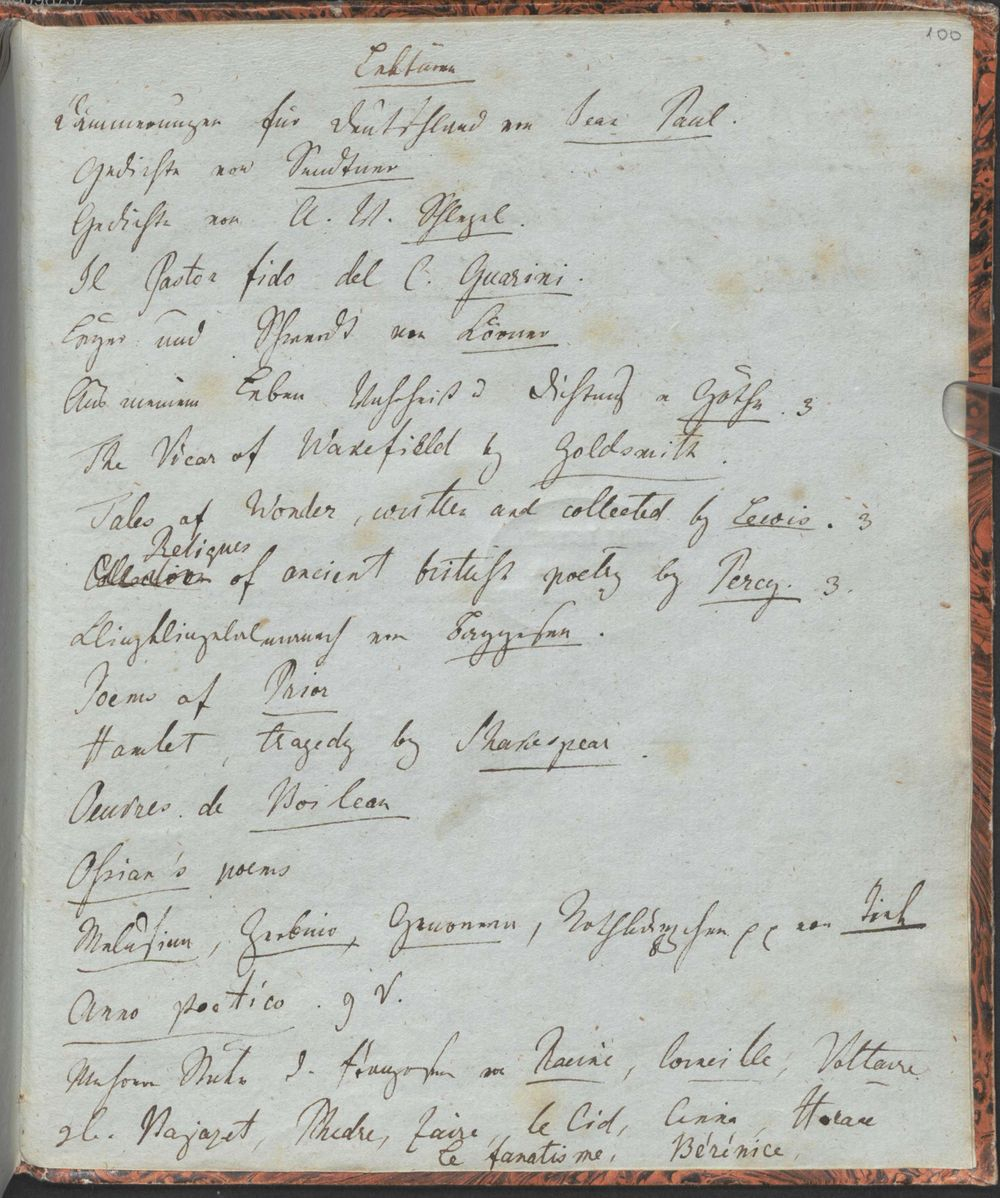 100
Lektüren
Dämmerungen für Deutschland von Jean Paul.
Gedichte von Sendtner
Gedichte von A. W. Schlegel.
Il Pastor fido del C. Guarini.
Leyer und Schwerdt von Körner
Aus meinem Leben Wahrheit u Dichtung v Göthe. 3
The Vicar of Wakefield by Goldsmith.
Tales of Wonder, written and collected by Lewis. 3
Reliques
Collection of ancient british poetry by Percy. 3.
Klingklingelalmanach von Baggesen.
Poems of Prior
Hamlet, tragedy by Shakespear.
Oeuvres de Boileau
Oßian's poems
Melusina, Zerbino, Genoveva, Rothkäppchen pp von Tiek
Anno poetico. 9 V.
Mehrere Stücke d. Französen von Racine, Corneille, Voltaire
als. Bajazet, Phedre, Zaire, le Cid, Cinna, Horace
Le fanatisme, Bérénice,